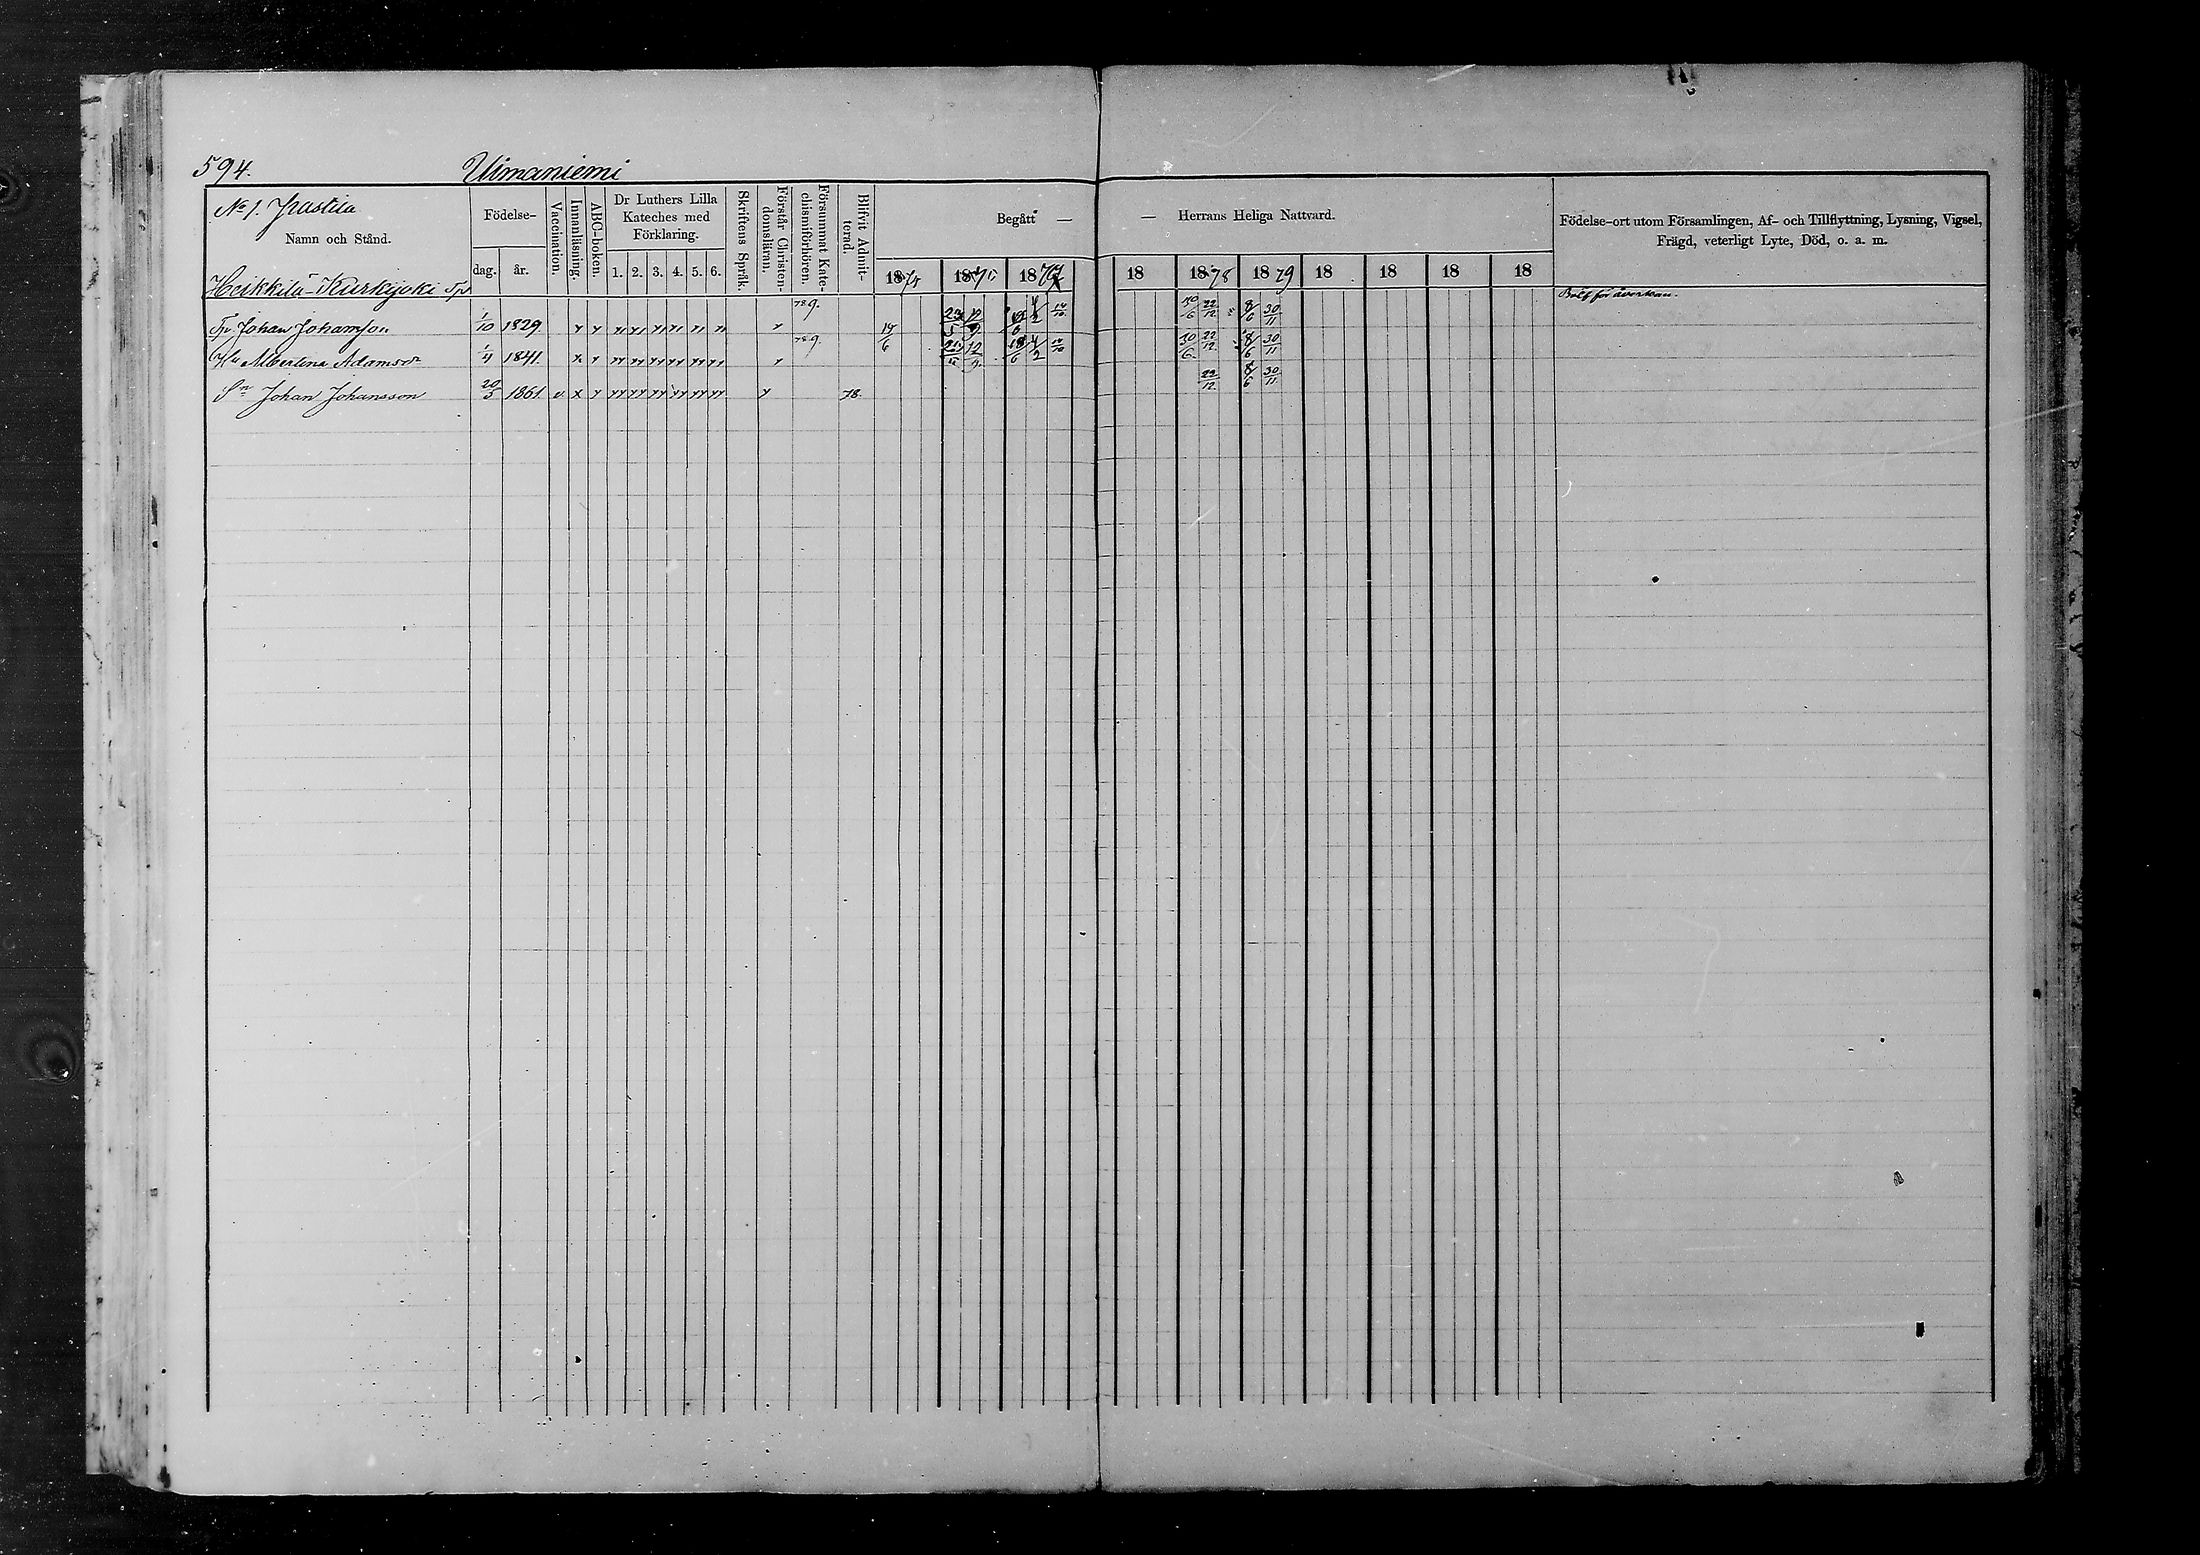 594.
Uimaniemi
No 1. Prastila
Namn och Stånd.
Födelse-
dag.
år.
Vaccination.
Innanläsning.
ABC-boken.
Dr Luthers Lilla
Kateches med
Förklaring.
1. 2. 3. 4. 5. 6.
Skriftens Språk.
Förstår Christen-
domsläran.
Försummat Kate-
chismiförhören.
Blifvit Admit-
terad.
Begått —
— Herrans Heliga Nattvard.
1875 18 1877 18 1878 1879 18 18 18 18
Födelse-ort utom Församlingen, Af- och Tillflyttning, Lysning, Vigsel,
Frägd, veterligt Lyte, Död, o. a. m.
Heikkilä-Kurkijoki Tp
Tp. Johan Johansson 1/10 1829 y y y y y y y y y 78 9. 23/5 4/2 14/10 30/6 22/12 8/6 30/11 Böt. för åverkan.
Hu Albertina Adamsdr 1/4 1841. x y y y y y y y y 78 9. 18/6 12/9 18/6 4/2 14/10 30/6 22/12 8/6 30/11
Sn Johan Johansson 20/3 1861 v. x y y y y y y y y 78. 22/12 8/6 30/11